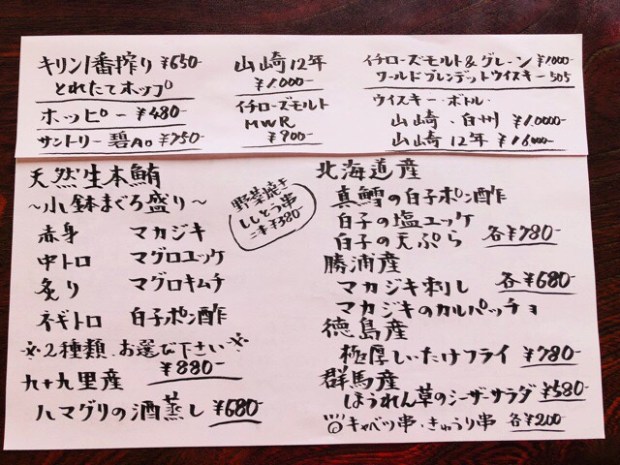 キリン一番搾り ¥650-
とれたてホップ
ホッピー ¥480-
サントリー 碧Ao ¥750-
山崎12年
¥1.000-
イチローズモルト
MWR
¥900-
イチローズモルト&グレーン ¥1000-
ワールドブレンデットウイスキー505
ウイスキー・ボトル・
山崎・白州 ¥10000-
山崎12年 ¥16000-
天然生本鮪
〜小鉢まぐろ盛り〜
赤身 マカジキ
中トロ マグロユッケ
炙り マグロキムチ
ネギトロ 白子ポン酢
※2種類お選び下さい※
¥880-
九十九里産
ハマグリの酒蒸し ¥680-
野菜焼き
ししとう串
二本 ¥380-
北海道産
真鱈の白子ポン酢
白子の塩ユッケ
白子の天ぷら 各¥780-
勝浦産
マカジキ刺し 各¥680-
マカジキのカルパッチョ
徳島産
極厚しいたけフライ ¥780-
群馬産
ほうれん草のシーザーサラダ ¥580-
キャベツ串・きゅうり串 各¥200-